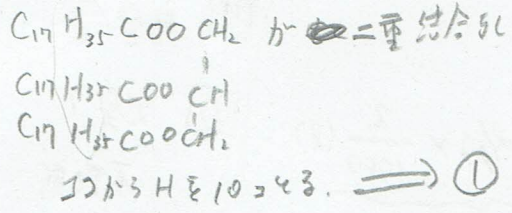 C₁₇H₃₅COOCH₂ が 二重結合5コ
C₁₇H₃₅COOCH
C₁₇H₃₅COOCH₂
ココからHを10コとる. ⟹ ①